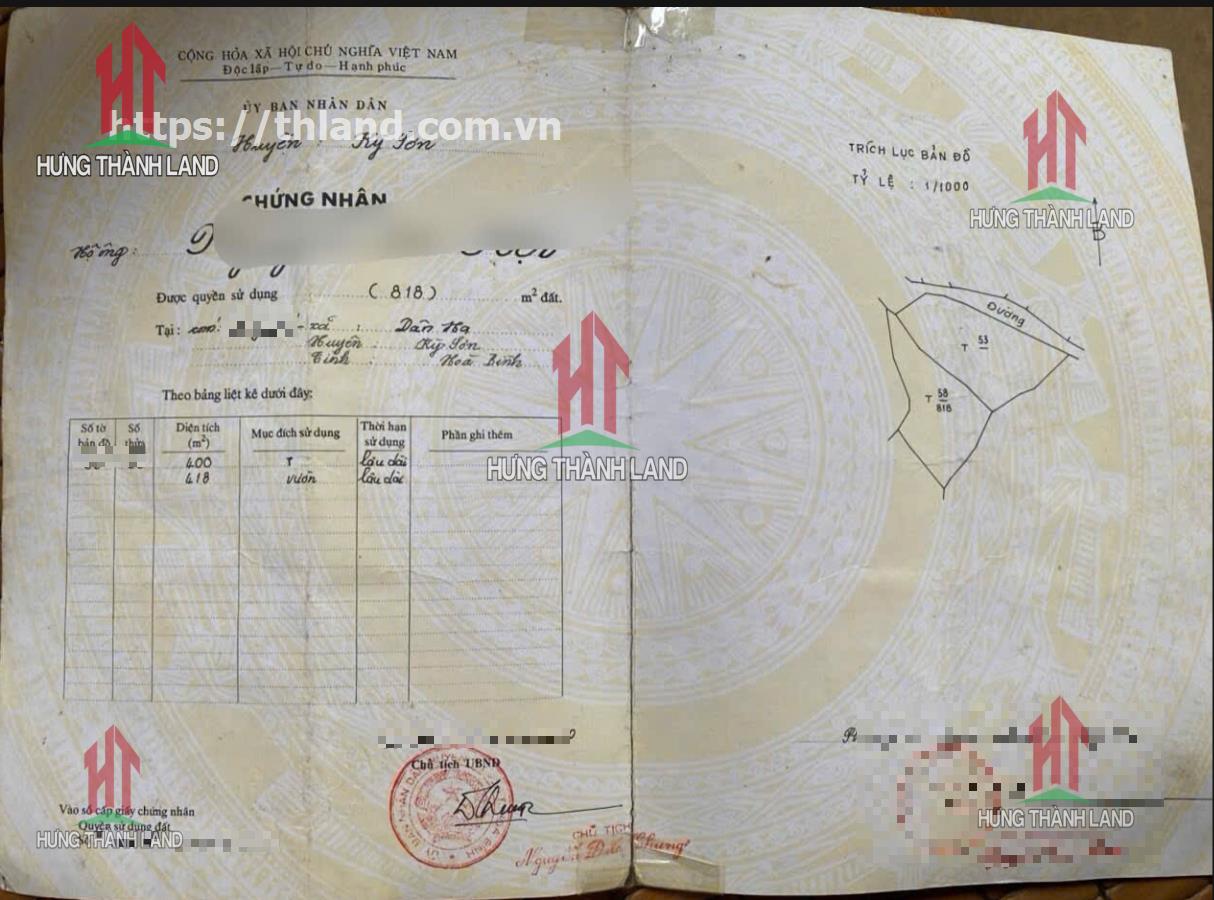 CỘNG HÒA XÃ HỘI CHỦ NGHĨA VIỆT NAM
Độc lập — Tự do — Hạnh phúc
ỦY BAN NHÂN DÂN
https://thland.com.vn
Huyện : Kỳ Sơn
HƯNG THÀNH LAND
CHỨNG NHẬN
Hộ ông:
Được quyền sử dụng (818) m² đất.
Tại: xã : Dân Hạ
Huyện : Kỳ Sơn
Tỉnh : Hoà Bình
Theo bảng liệt kê dưới đây:
Số tờ bản đồ Số thửa Diện tích (m²) Mục đích sử dụng Thời hạn sử dụng Phần ghi thêm
400 T lâu dài
418 vườn lâu dài
HƯNG THÀNH LAND
Chủ tịch UBND
Vào sổ cấp giấy chứng nhận
Quyền sử dụng đất
HƯNG THÀNH LAND
CHỦ TỊCH
Nguyễn Đức Chung
TRÍCH LỤC BẢN ĐỒ
TỶ LỆ : 1/1000
HƯNG THÀNH LAND
B
Đường
T 53
T 58
818
HƯNG THÀNH LAND